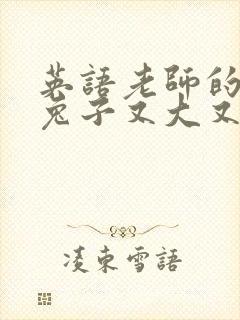 英語老師的
兔子又大又
凌束雪語